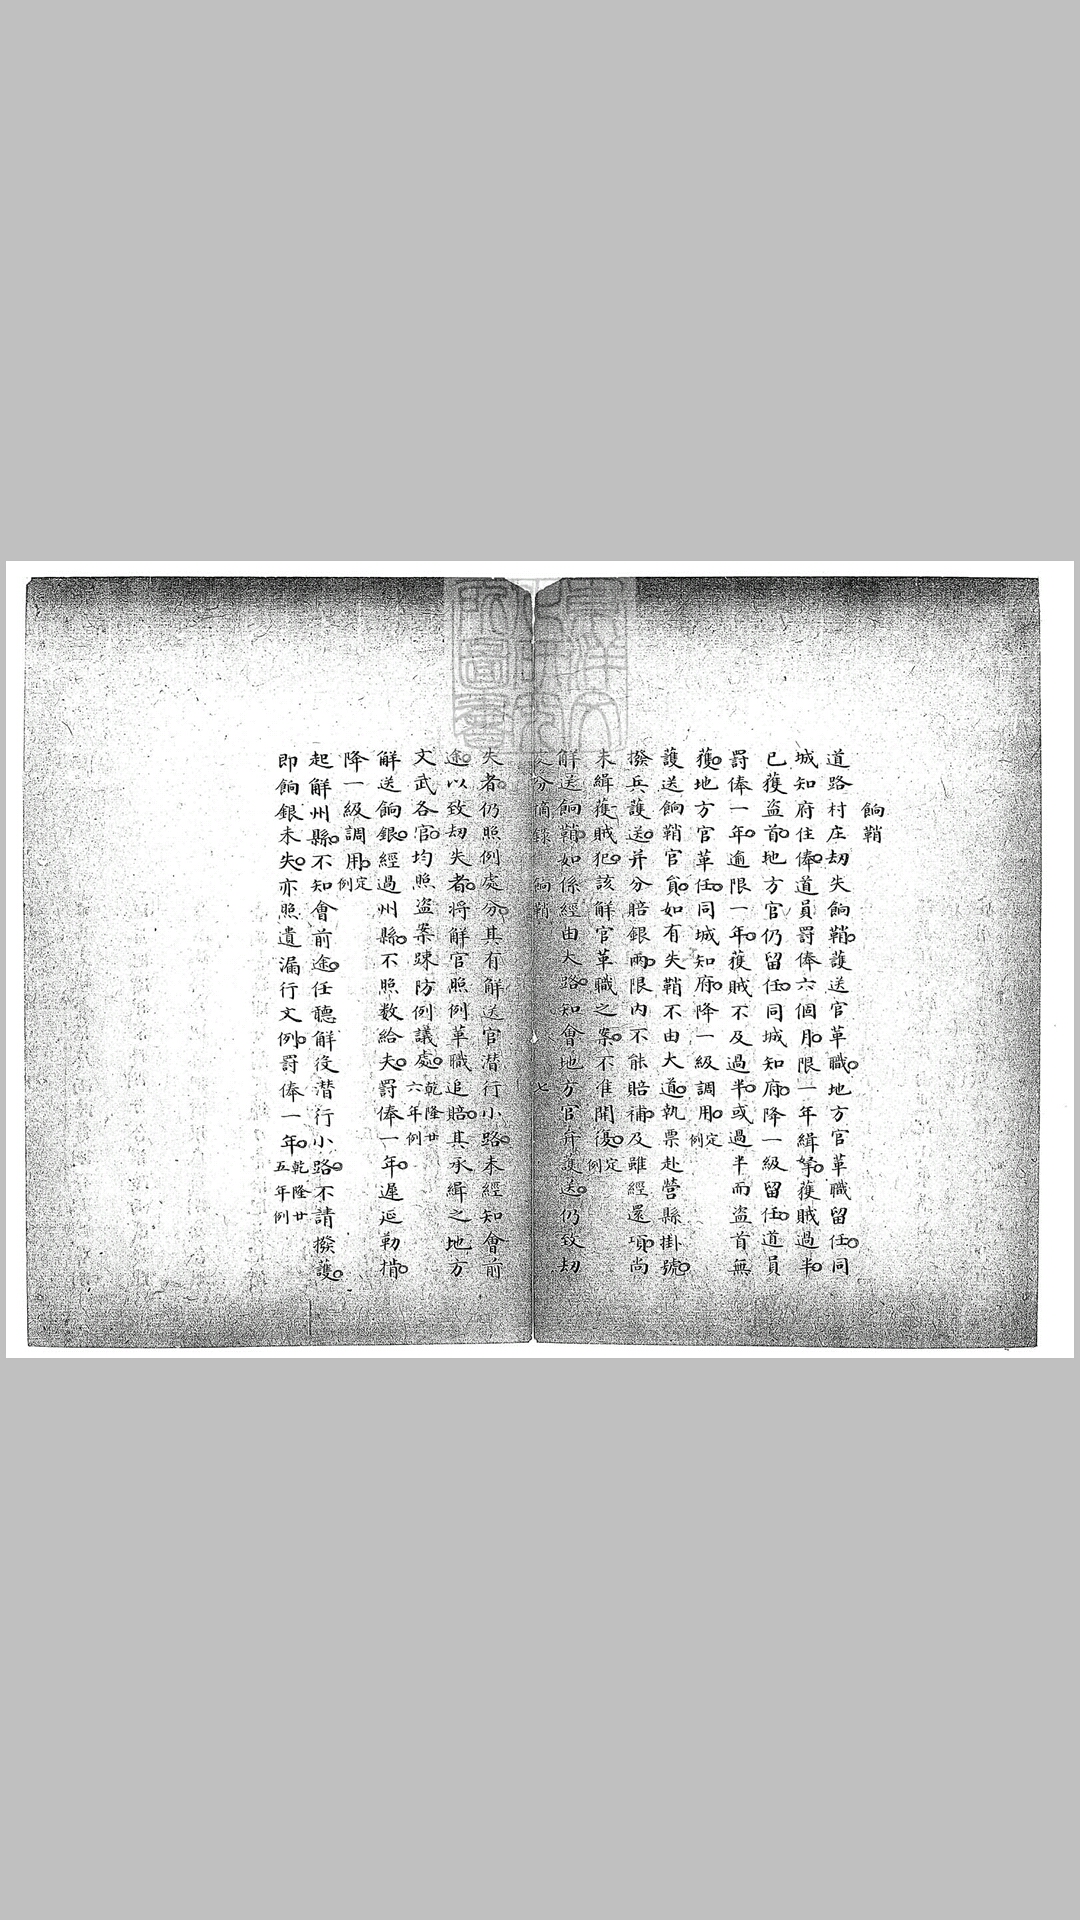 餉鞘
道路村庄刼失餉鞘護送官革職地方官革職留任同
城知府住俸道員罰俸六個月限一年緝拏獲賊過半
已獲盜首地方官仍留任同城知府降一級留任道員
罰俸一年逾限一年獲賊不及過半或過半而盜首無
獲地方官革任同城知府降一級調用定例
護送餉鞘官員如有失鞘不由大道執票赴營縣掛號
撥兵護送并分賠銀兩限内不能賠補及雖經還項尚
未緝獲賊犯該解官革職之案不准開復定例
解送餉鞘如係經由大路知會地方官弁護送仍致刼
處分備錄 餉鞘 七
失者仍照例處分其有解送官潛行小路未經知會前
途以致刼失者將解官照例革職追賠其承緝之地方
文武各官均照盜案踈防例議處乾隆廿六年例
解送餉銀經過州縣不照数給夫罰俸一年遲延勒掯
降一級調用定例
起解州縣不知會前途任聽解役潛行小路不請撥護
即餉銀未失亦照遺漏行文例罰俸一年乾隆廿五年例